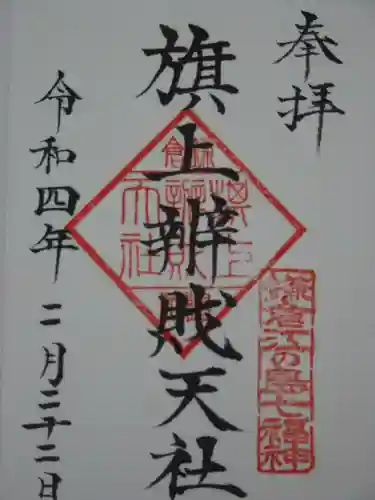 奉拝
鎌倉江の島七福神
旗上辨財天社
鎌倉
旗上
辨財
天社
令和四年二月二十二日